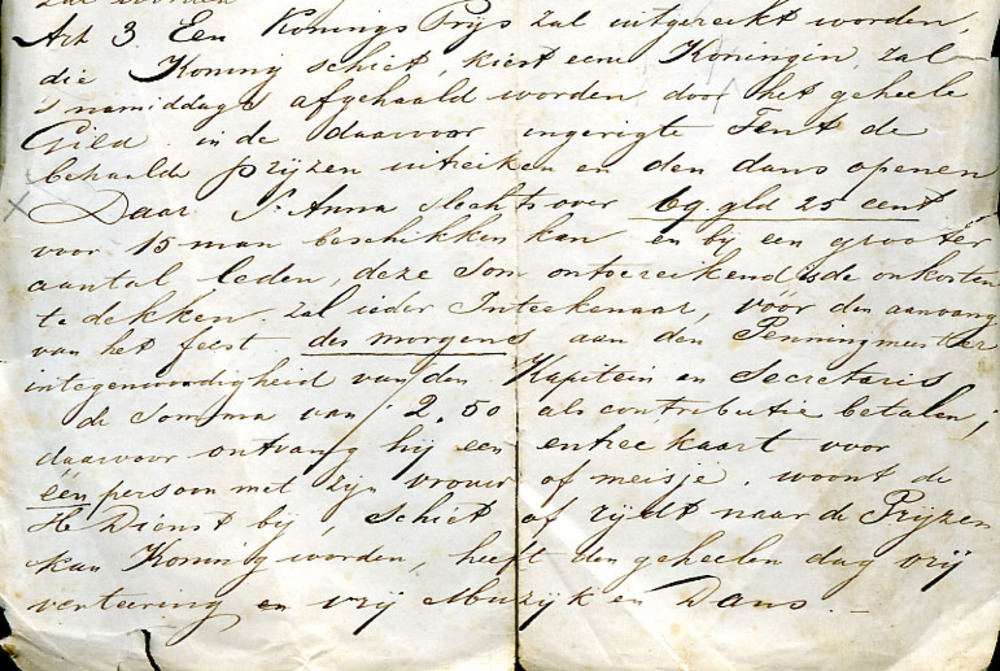 zal worden
Art 3. Een Konings Prijs zal uitgereikt worden,
die Koning schiet, kiest eene Koningin, zal
's namiddags afgehaald worden door het geheele
Gild. in de daarvoor ingerigte Tent de
behaalde prijzen uitreiken en den dans openen
Daar St Anna slechts over 69. gld 25 cent
voor 15 man beschikken kan en bij een grooter
aantal leden, deze Som ontoereikend is de onkosten
te dekken. zal ieder Inteekenaar, vóór den aanvang
van het feest des morgens aan den Penningmeester
in tegenwoordigheid van den Kapitein en Secretaris
de Somma van f 2,50 als contributie betalen,
daarvoor ontvang hij een entree kaart voor
één persoon met zijn vrouw of meisje. woont de
He Dienst bij, schiet of rijdt naar de Prijzen
kan Koning worden, heeft den geheelen dag vrij
verteering en vrij Muzijk en Dans. -